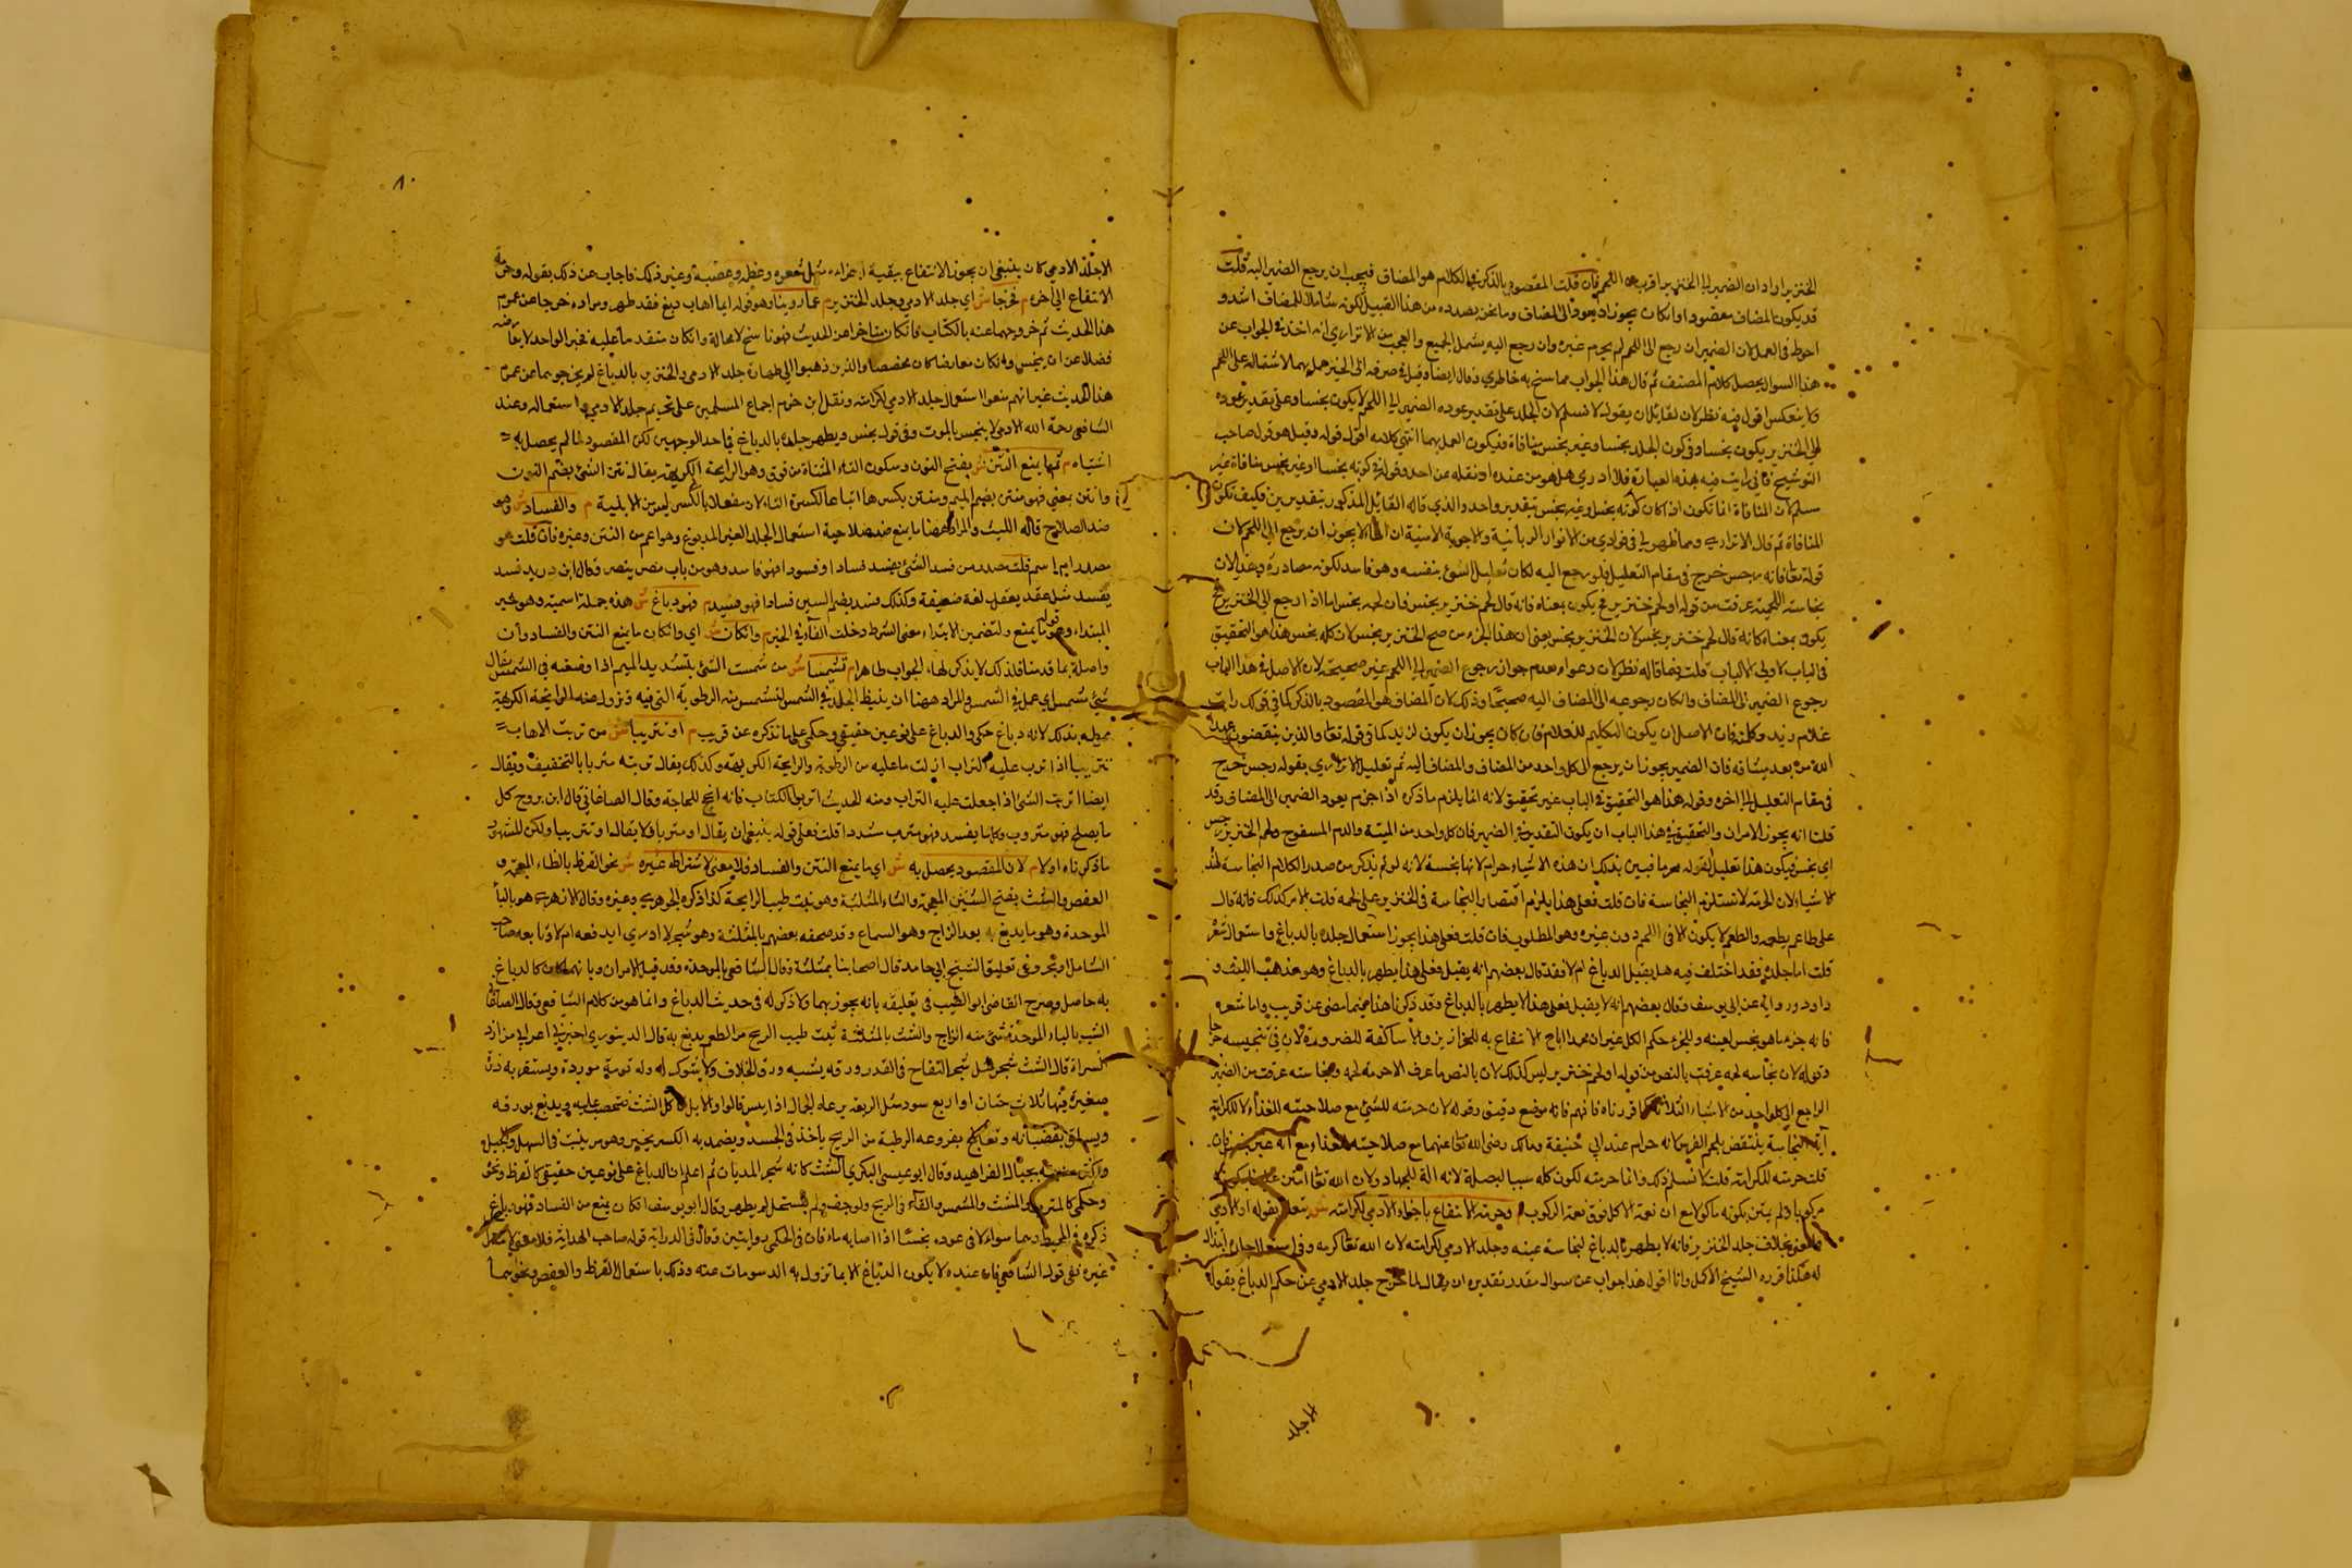 الخنزير اواد ان الضمير الى الخنزير اقرب من اللحم فان قلت المقصود بالذكر في الكلام هو المضاف فيجب ان يرجع الضمير اليه قلت
قد يكون المضاف مقصودا وان كان يجوز ان يعود الى المضاف وما نحن بصدده من هذا القبيل لكونه شاملا للمضاف اشد و
احوط في العمل لان الضمير ان رجع الى اللحم لم يحرم غيره وان رجع اليه يشمل الجميع والعجب من الاتراري انه اخذ في الجواب عن
هذا السوال يحصل كلام المصنف ثم قال هذا الجواب مما سنح به خاطري وقال ايضا وقيل في صرفه الى الخنزير عمل بهما لاشتماله على اللحم
ولا ينعكس اقول فيه نظر لان لقائل ان يقول لا نسلم لان الجلد على تقدير عوده الضمير الى اللحم لا يكون نجسا وعلى تقدير عوده
الى الخنزير يكون نجسا وفي كون الجلد نجسا وغير نجس منافاة فيكون العمل بهما انتهى كلامه اقول قوله وقيل هو قول صاحب
التوشيح فاني رايت فيه هذه العبارة فلا ادري هل هو من عنده او نقله عن احد وقوله في كونه نجسا وغير نجس منافاة غير
مسلم لان المنافاة انما تكون اذا كان كونه نجسا وغير نجس بتقدير واحد والذي قاله القائل المذكور بتقديرين فكيف تكون
المنافاة ثم قال الاتراري ومما ظهر لي في فوادي من الانوار الربانية والاجوبة الالسنية ان الهاء لا يجوز ان يرجع الى اللحم لان
قوله تعالى فانه رجس خرج في مقام التعليل فلو رجع اليه لكان تعليل الشئ بنفسه وهو فاسد لكونه مصادرة وهذا لان
نجاسته اللحمية عرفت من قوله او لحم خنزير يكون معناه فانه قال لحم خنزير نجس فان لحمه نجس اما اذا رجع الى الخنزير
يكون معناه كانه قال لحم خنزير نجس لان الخنزير نجس يعني ان هذا الجزء من صح الخنزير نجس لان كله نجس هذا هو التحقيق
في الباب لاولي الالباب قلت فيما قاله نظر لان دعواه عدم جواز رجوع الضمير الى اللحم غير صحيحة لان الاصل في هذا الباب
رجوع الضمير الى المضاف وان كان رجوعه الى المضاف اليه صحيحا وذلك لان المضاف هو المقصود بالذكر كما في قولك رايت
غلام زيد وكلمته فان الاصل ان يكون التكليم للغلام وان كان يجوز ان يكون لزيد كما في قوله تعالى والذين ينقضون عهد
الله من بعد ميثاقه فان الضمير يجوز ان يرجع الى كل واحد من المضاف والمضاف اليه ثم تعليل الاتراري بقوله رجس خرج
في مقام التعليل الى اخره وقوله هذا هو التحقيق في الباب غير تحقيق لانه انما يلزم ما ذكره اذا جزم بعود الضمير الى المضاف وقد
قلنا انه يجوز الامران والتحقيق في هذا الباب ان يكون التقدير في الضمير فان كل واحد من الميتة والدم المسفوح ولحم الخنزير رجس
اي نجس فيكون هذا تعليل لقوله محرما فبين بذلك ان هذه الاشياء حرام لانها نجسة لانه لو لم يذكر من صدر الكلام النجاسة لهذه
الاشياء لان الحرمة لا تستلزم النجاسة فان قلت فعلى هذا يلزم اقتصار النجاسة في الخنزير على لحمه قلت الامر كذلك فانه قال
على طاعم يطعمه والطعم لا يكون الا في اللحم دون غيره وهو المطلوب فان قلت فعلى هذا يجوز استعمال جلده بالدباغ واستعمال شعره
قلت اما جلده فقد اختلف فيه هل يقبل الدباغ ام لا فقد قال بعضهم انه يقبل فعلى هذا يطهر بالدباغ وهو مذهب الليث و
داود ورواية عن ابي يوسف وقال بعضهم انه لا يقبل فعلى هذا لا يطهر بالدباغ وقد ذكرنا هذا فيما مضى عن قريب واما شعره
فانه جزء ما هو نجس لعينه وللجزء حكم الكل غير ان محمدا اباح الانتفاع به للخرازين والاساكفة للضرورة لان في تنجيسه حرجا
وقوله لان نجاسة لحمه عرفت بالنص من قوله او لحم خنزير ليس كذلك لان بالنص ما عرف الا حرمة لحمه ونجاسته عرفت من الضمير
الراجع الى كل واحد من الاشياء الثلاثة كما قررناه فافهم فانه موضع دقيق وقوله لان حرمته للشئ مع صلاحيته للغذاء لا للكرامة
آية النجاسة ينتقض بلحم الفرس فانه حرام عند ابي حنيفة ومالك رضي الله تعالى عنهما مع صلاحيته للغذاء مع انه غير نجس فان
قلت حرمته للكرامة قلت لا نسلم ذلك وانما حرمته لكون كله سببا لبصلة لانه الة للجهاد ولان الله تعالى امتن علينا بكونه
مركوبا ولم يمتن بكونه ماكولا مع ان نعمة الاكل فوق نعمة الركوب م وحرمة الانتفاع باجزاء الآدمي لكرامته ش تعلق بقوله او الادمي
بخلاف جلد الخنزير فانه لا يطهر بالدباغ لنجاسة عينه وجلد الادمي لكرامته لان الله تعالى كرمه وفي استعمال جلده ابتذال
له هكذا قرره الشيخ الاكمل وانا اقول هذا جواب عن سوال مقدر تقديره ان يقال لما خرج جلد الادمي عن حكم الدباغ بقوله
الا جلد
٨٠
الا جلد الادمي كان ينبغي ان يجوز الانتفاع ببقية اجزائه مثل شعره وعظمه وعصبه وغير ذلك فاجاب عن ذلك بقوله وحرمة
الانتفاع الى اخره م فخرجا ش اي جلد الادمي وجلد الخنزير م عما روينا وهو قوله ايما اهاب دبغ فقد طهر ومراده خرجا من عموم
هذا الحديث ثم خروجهما عنه بالكتاب فان كان متاخرا عن الحديث فهو ناسخ لا محالة وان كان متقدما عليه فخبر الواحد لا يعارضه
فضلا عن ان ينجس ولو كان معارضا كان مخصصا والذين ذهبوا الى طهارة جلد الادمي والخنزير بالدباغ لم يخرجوهما عن عموم
هذا الحديث غير انهم منعوا استعمال جلد الادمي لكرامته ونقل ابن حزم اجماع المسلمين على تحريم جلد الادمي واستعماله وعند
الشافعي رحمه الله الادمي لا ينجس بالموت وفي قول ينجس ويطهر جلده بالدباغ في احد الوجهين لكن المقصود لما لم يحصل به
اشتباه م ثم ما يمنع النتن ش بفتح النون وسكون التاء المثناة من فوق وهو الرايحة الكريهة يقال نتن الشئ بضم النون
وانتن بمعنى فهو منتن بضم الميم ومنتن بكسرها اتباعا لكسرة التاء لان مفعلا بالكسر ليس من الابنية م والفساد ش هو
ضد الصلاح قاله الليث والمراد ههنا ما يمنع ضد صلاحية استعمال الجلد الغير المدبوغ وهو اعم من النتن وغيره فان قلت هو
مصدر ام اسم قلت مصدر من فسد الشئ يفسد فسادا وفسودا فهو فاسد وهو من باب نصر ينصر وقال ابن دريد فسد
يفسد مثل عقد يعقل لغة ضعيفة وكذلك فسد بضم السين فسادا فهو فسيد م فهو دباغ ش هذه جملة اسمية وهو خبر
المبتداء وهو قوله ما يمنع ولتضمين الابتداء معنى الشرط دخلت الفاء في الخبر م وان كان ش اي وان كان ما يمنع النتن والفساد وان
واصلة بما قدمنا فلذلك لا يذكر لها الجواب ظاهرا م تشميسا ش من شمست الشئ بتشديد الميم اذا وضعته في الشمس يقال
شئ مشمس اي عمل في الشمس والمراد ههنا ان يبسط الجلد في الشمس لتشمس منه الرطوبة التي فيه وتزول عنه الرايحة الكريهة
فيطهر بذلك لانه دباغ حكمي والدباغ على نوعين حقيقي وحكمي على ما نذكره عن قريب م او تتريبا ش من تربت الاهاب
تتريبا اذا ترب عليه التراب ازلت ما عليه من الرطوبة والرايحة الكريهة وكذلك يقال تربته متربا بالتخفيف ويقال
ايضا اتربت الشئ اذا جعلت عليه التراب ومنه الحديث اتربوا الكتاب فانه انجح للحاجة وقال الصاغاني قال ابن بزرج كل
ما يصلح فهو متروب وكلما يفسد فهو مترب مشددا قلت فعلى قوله ينبغي ان يقال او متربا فلا يقال او تتريبا ولكن المشهور
ما ذكرناه اولا م لان المقصود يحصل به ش اي ما يمنع النتن والفساد فلا معنى لاشتراط غيره ش نحو القرظ بالظاء المعجمة و
العفص والشث بفتح الشين المعجمة والثاء المثلثة وهو نبت طيب الرايحة كذا ذكره الجوهري وغيره وقال الازهري هو بالباء
الموحدة وهو ما يدبغ به يعد الزاج وهو السماع وقد صحفه بعضهم بالمثلثة وهو شجر لا ادري ايدفعه ام لا وتابعه صاحب
الشامل والبحر وفي تعليق الشيخ ابي حامد قال اصحابنا بمثلثة وقال الشافعي بالموحدة وقد قيل الامران وبايهما كان كالدباغ
به حاصل وصرح القاضي ابو الطيب في تعليقه بانه يجوز بهما ولا ذكر له في حديث الدباغ وانما هو من كلام الشافعي وقال الصاغاني
الشب بالباء الموحدة شئ منه الزاج والشث بالمثلثة نبت طيب الريح مر الطعم يدبغ به قال الدينوري اخبرني اعرابي من ازد
السراة قال الشث شجر مثل شجر التفاح في القدر ورقه يشبه ورق الخلاف ولا شوك له وله نومة موردة ويستقر به ذق
صغيرة فيها ثلاث حبات او اربع سود مثل الربعة يرعاه الجمال اذا يبس قالوا والابل تاكل الشث تتحصب عليه ويدبغ بورقه
ويستاق بقضبانه وتعالج بفروعه الرطبة من الريح ياخذ في الجسد ويضمد به الكسر يجبر وهو مر ينبت في السهل والجبل
واكثر منبته بجبال الفراهيد وقال ابو عيسى البكري الشث كانه شجر المديان ثم اعلم ان الدباغ على نوعين حقيقي كالقرظ ونحو
وحكمي كالمترب والمشث والشمس والقاء في الريح ولو جف ولم يستحل لم يطهر وقال ابو يوسف ان كان يمنع من الفساد فهو دباغ
ذكره في المحيط وهما سواء الا في عوده نجسا اذا اصابه ماء فان في الحكمي روايتين وقال في الدراية قوله صاحب الهداية فلا معنى لاشتراط
غيره نفى قول الشافعي فان عنده لا يكون الدباغ الا بما تزول به الدسومات عنه وذلك باستعمال القرظ والعفص ونحوهما